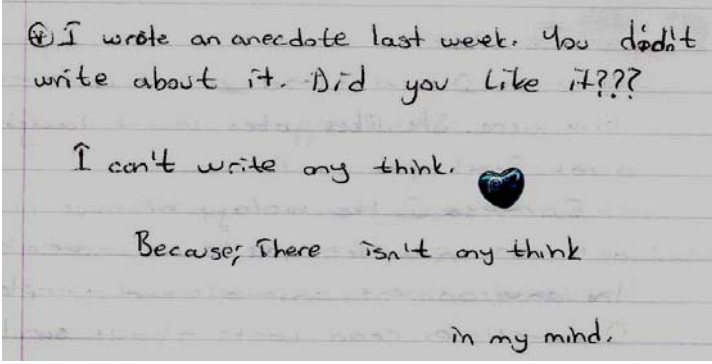 I wrote an anecdote last week. You didn't
write about it. Did you like it???
I can't write any think.
Because; There isn't any think
in my mind.